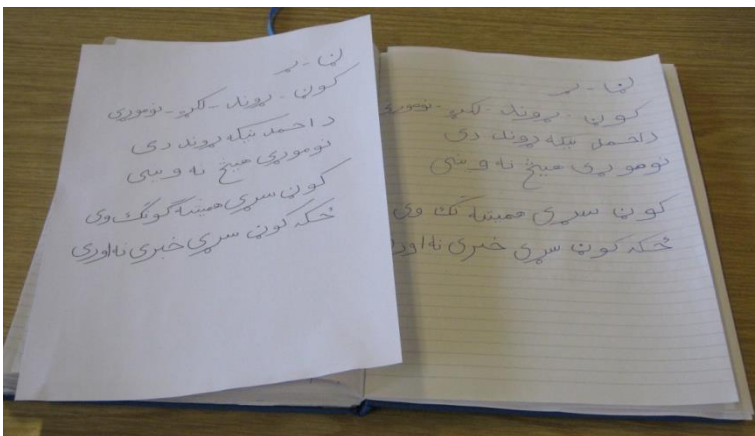 ڼ - ړ
کوڼ - ړوند - لکړه - نوموړی
د احمد نیکه ړوند دی
نوموړی هیڅ نه وینی
کوڼ سړی همیشه گونگ وی
ځکه کوڼ سړی خبری نه اوری
ڼ - ړ
کوڼ - ړوند - لکړه - نوموړی
د احمد نیکه ړوند دی
نوموړی هیڅ نه وینی
کوڼ سړی همیشه گنگ وی
ځکه کوڼ سړی خبری نه اوری